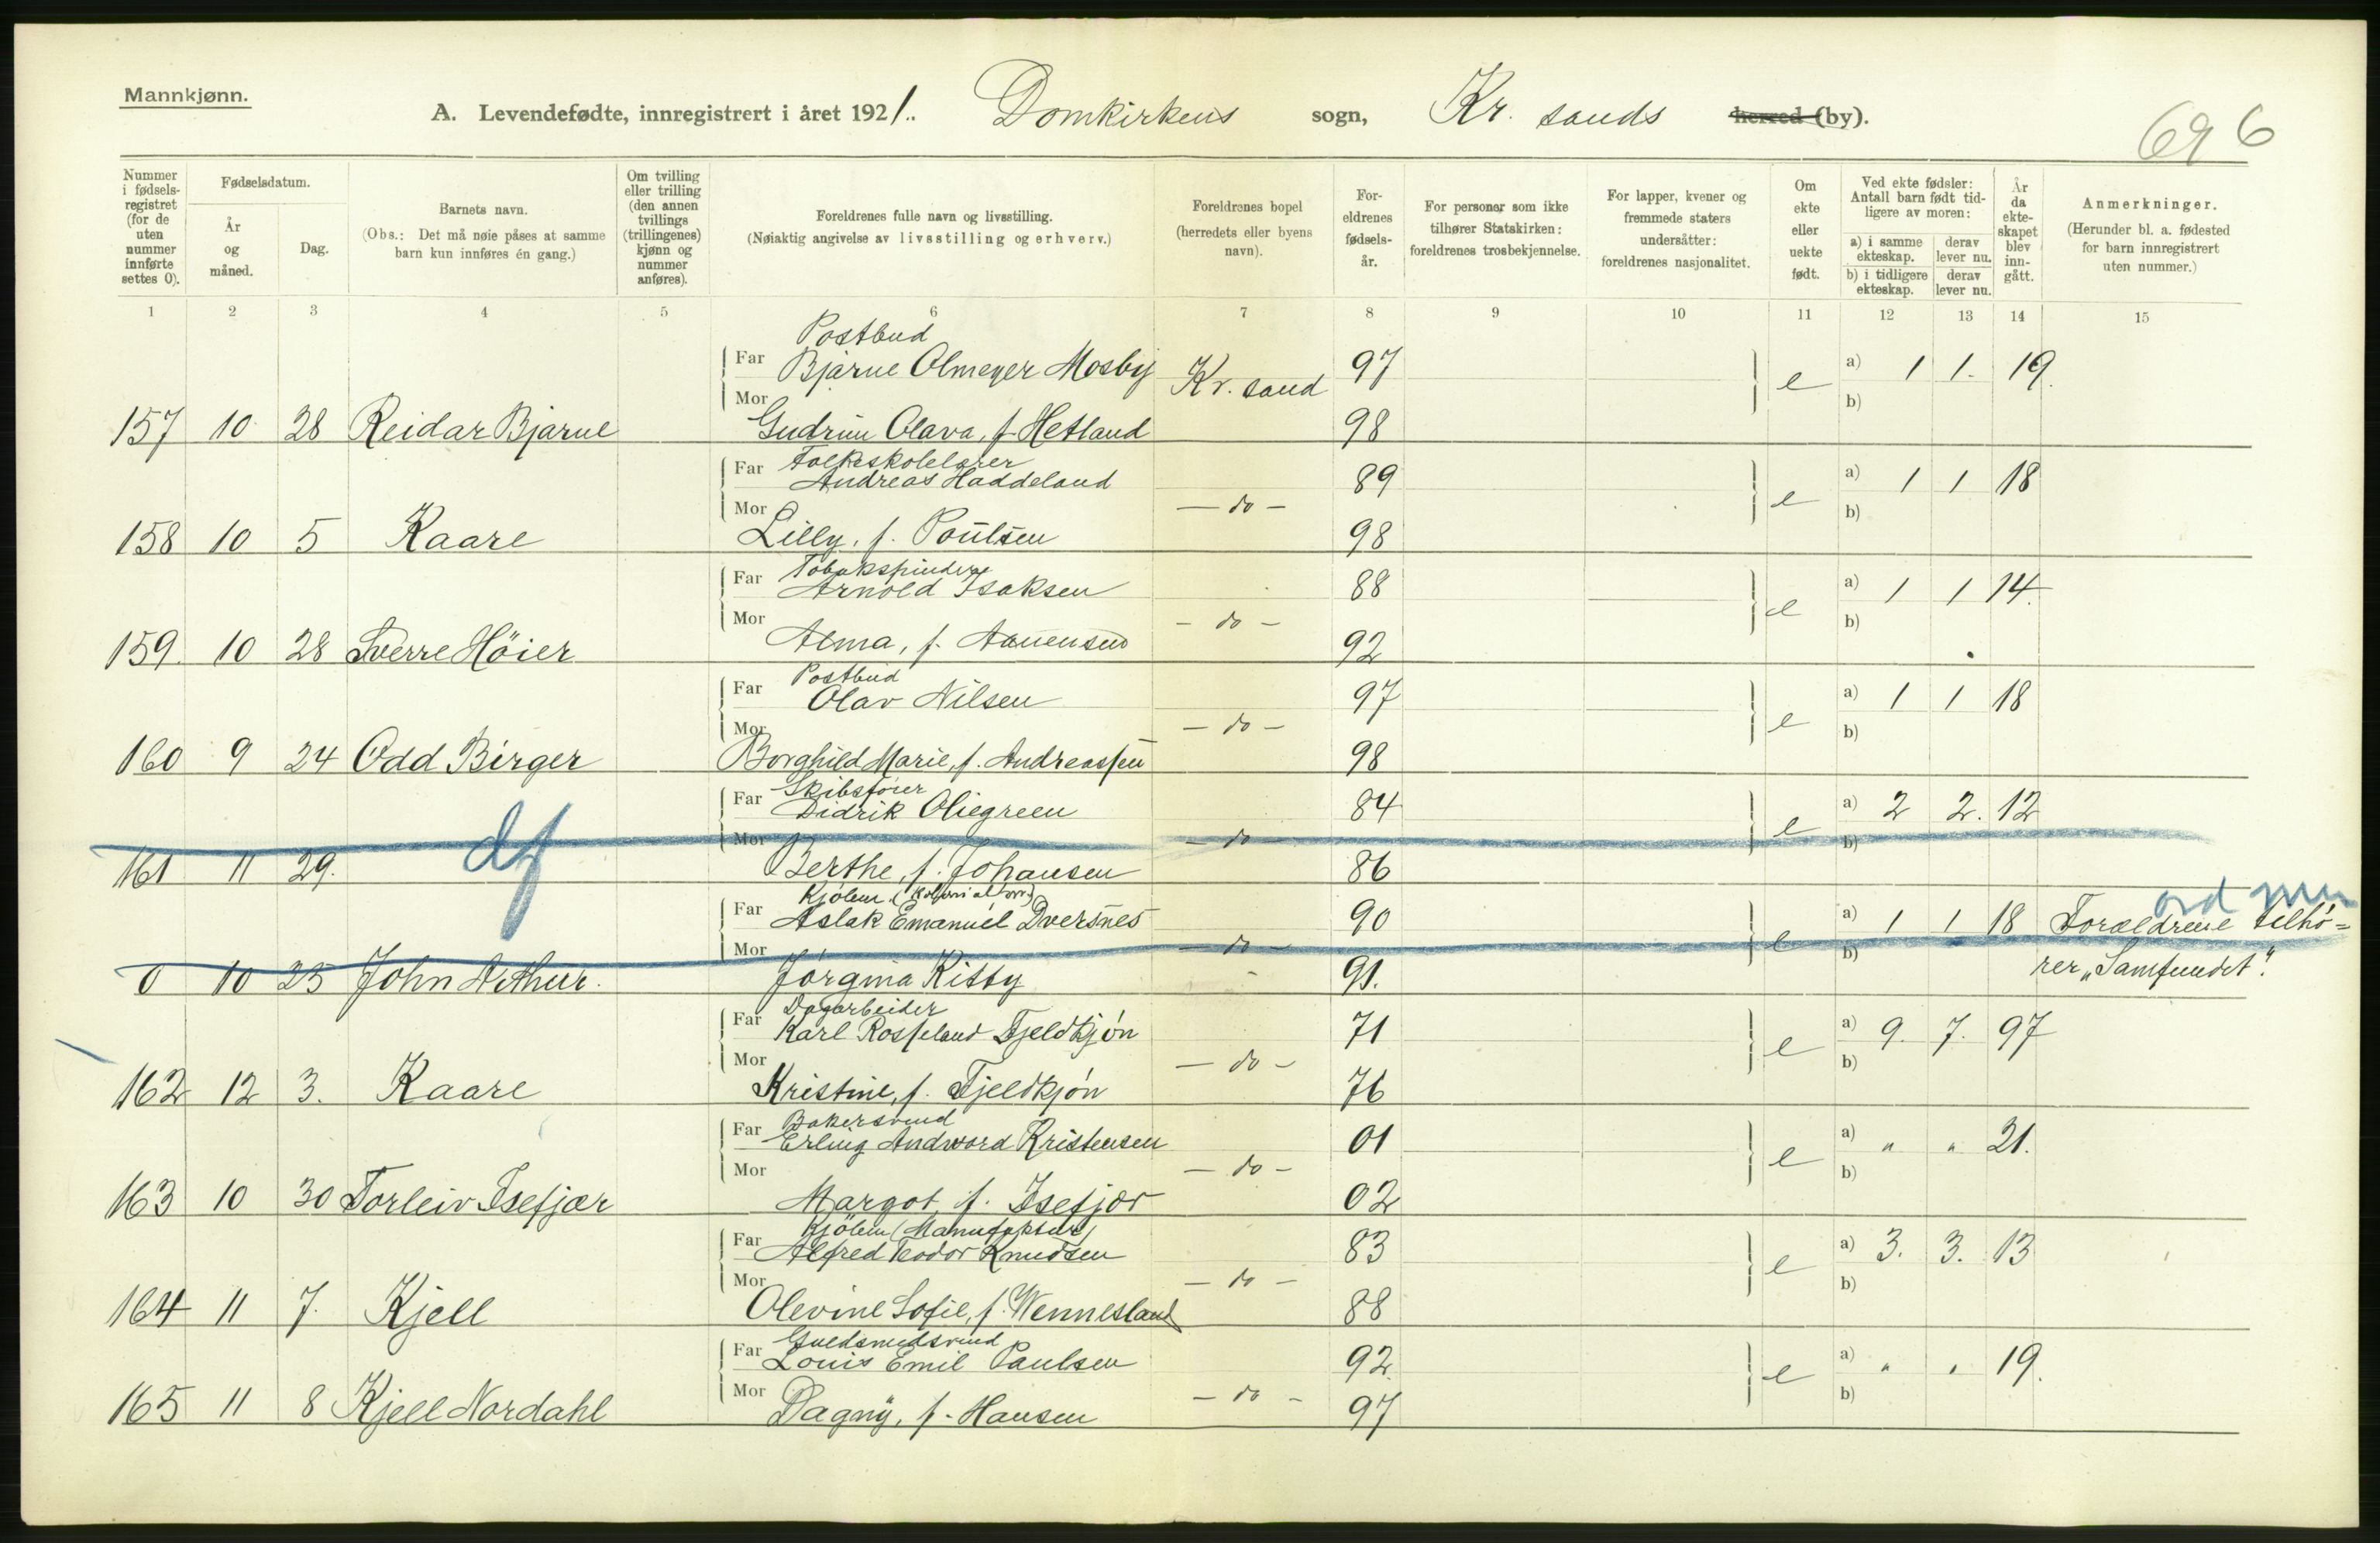 Mannkjønn.
A. Levendefødte, innregistrert i året 1921. Domkirkens sogn, Kr. sands herred (by).
696
Nummer i fødselsregistret (for de uten nummer innførte settes 0).
Fødselsdatum.
År og måned.
Dag.
Barnets navn.
(Obs.: Det må nøie påses at samme barn kun innføres én gang.)
Om tvilling eller trilling (den annen tvillings (trillingenes) kjønn og nummer anføres).
Foreldrenes fulle navn og livsstilling.
(Nøiaktig angivelse av livsstilling og erhverv.)
Foreldrenes bopel (herredets eller byens navn).
Foreldrenes fødselsår.
For personer som ikke tilhører Statskirken: foreldrenes trosbekjennelse.
For lapper, kvener og fremmede staters undersåtter: foreldrenes nasjonalitet.
Om ekte eller uekte født.
Ved ekte fødsler: Antall barn født tidligere av moren:
a) i samme ekteskap. derav lever nu.
b) i tidligere ekteskap. derav lever nu.
År da ekteskapet blev inngått.
Anmerkninger.
(Herunder bl. a. fødested for barn innregistrert uten nummer.)
1 2 3 4 5 6 7 8 9 10 11 12 13 14 15
Postbud
Far Bjarne Olmeyer Mosby Kr. sand 97 e a) 1 1. 19.
Mor b)
157 10 28 Reidar Bjarne Gudrun Olava, f. Hetland 98
Folkeskolelærer
Far Andreas Haddeland 89 e a) 1 1 18
Mor - do - b)
158 10 5 Kaare Lilly, f. Poulsen 98
Tobakspinder
Far Arnold Isaksen 88 e a) 1 1 14.
Mor - do - b)
159. 10 28 Sverre Höier Alma, f. 92
Postbud
Far Olav Nilsen 97 e a) 1 1 18
Mor - do - b)
160 9 24 Odd Birger Borghild Marie, f. Andreassen 98
Skibsfører
Far Didrik Oliegreen 84 e a) 2 2. 12
Mor - do - b)
161 11 29. df Berthe, f. Johansen 86
Kjøbm. (Kolonialvar.)
Far Aslak Emanuel Dversnes 90 e a) 1 1 18 Forældrene tilhö=
Mor - do - b) rer „Samfundet".
0 10 25 John Arthur. Jörgina Kitty 91.
Dagarbeider
Far Karl Rosseland Fjeldkjön 71 e a) 9. 7. 97
Mor - do - b)
162 12 3. Kaare Kristine, f. Fjeldkjön 76
Bakersvend
Far Erling Andword Kristensen 01 e a) " " 21.
Mor - do - b)
163 10 30 Torleiv Isefjær Margot, f. Isefjær 02
Kjöbm (Manufaktur)
Far Alfred Teodor Knudsen 83 e a) 3. 3. 13
Mor - do - b)
164 11 7. Kjell Olevine Sofie, f. Wennesland 88
Guldsmedsvend
Far Louis Emil Paulsen 92. e a) " " 19.
Mor - do - b)
165 11 8 Kjell Nordahl Dagny, f. Hansen 97